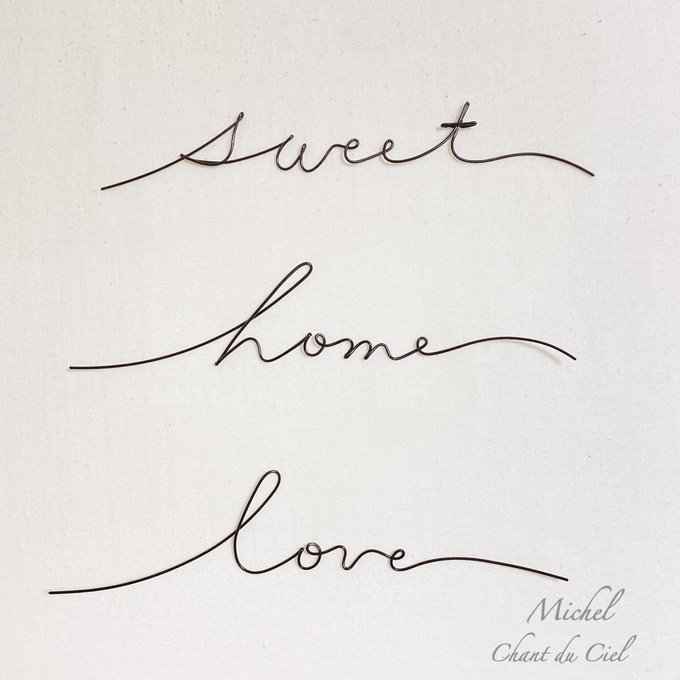 sweet
home
love
Michel
Chant du Ciel